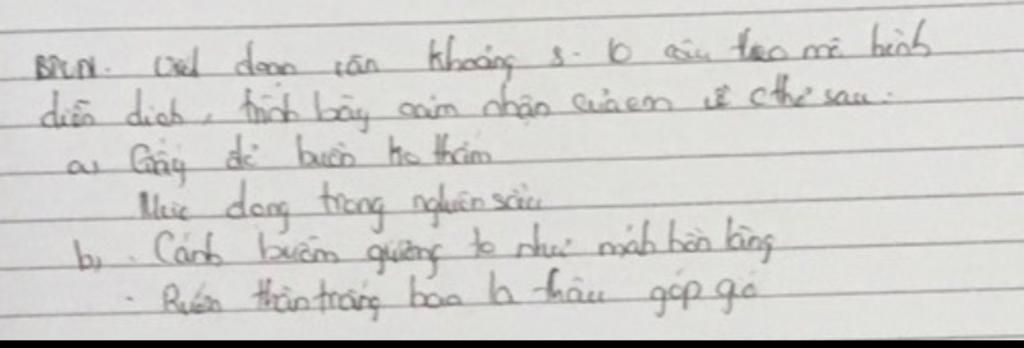 BTVN. Viết đoạn văn khoảng 8-10 câu theo mô hình
diễn dịch, trình bày cảm nhận của em về c thơ sau:
a, Giấy đỏ buồn ko thắm
Mực đọng trong nghiên sầu
b, . Cánh buồm giương to như mảnh hồn làng
. Rướn thân trắng bao la thâu góp gió